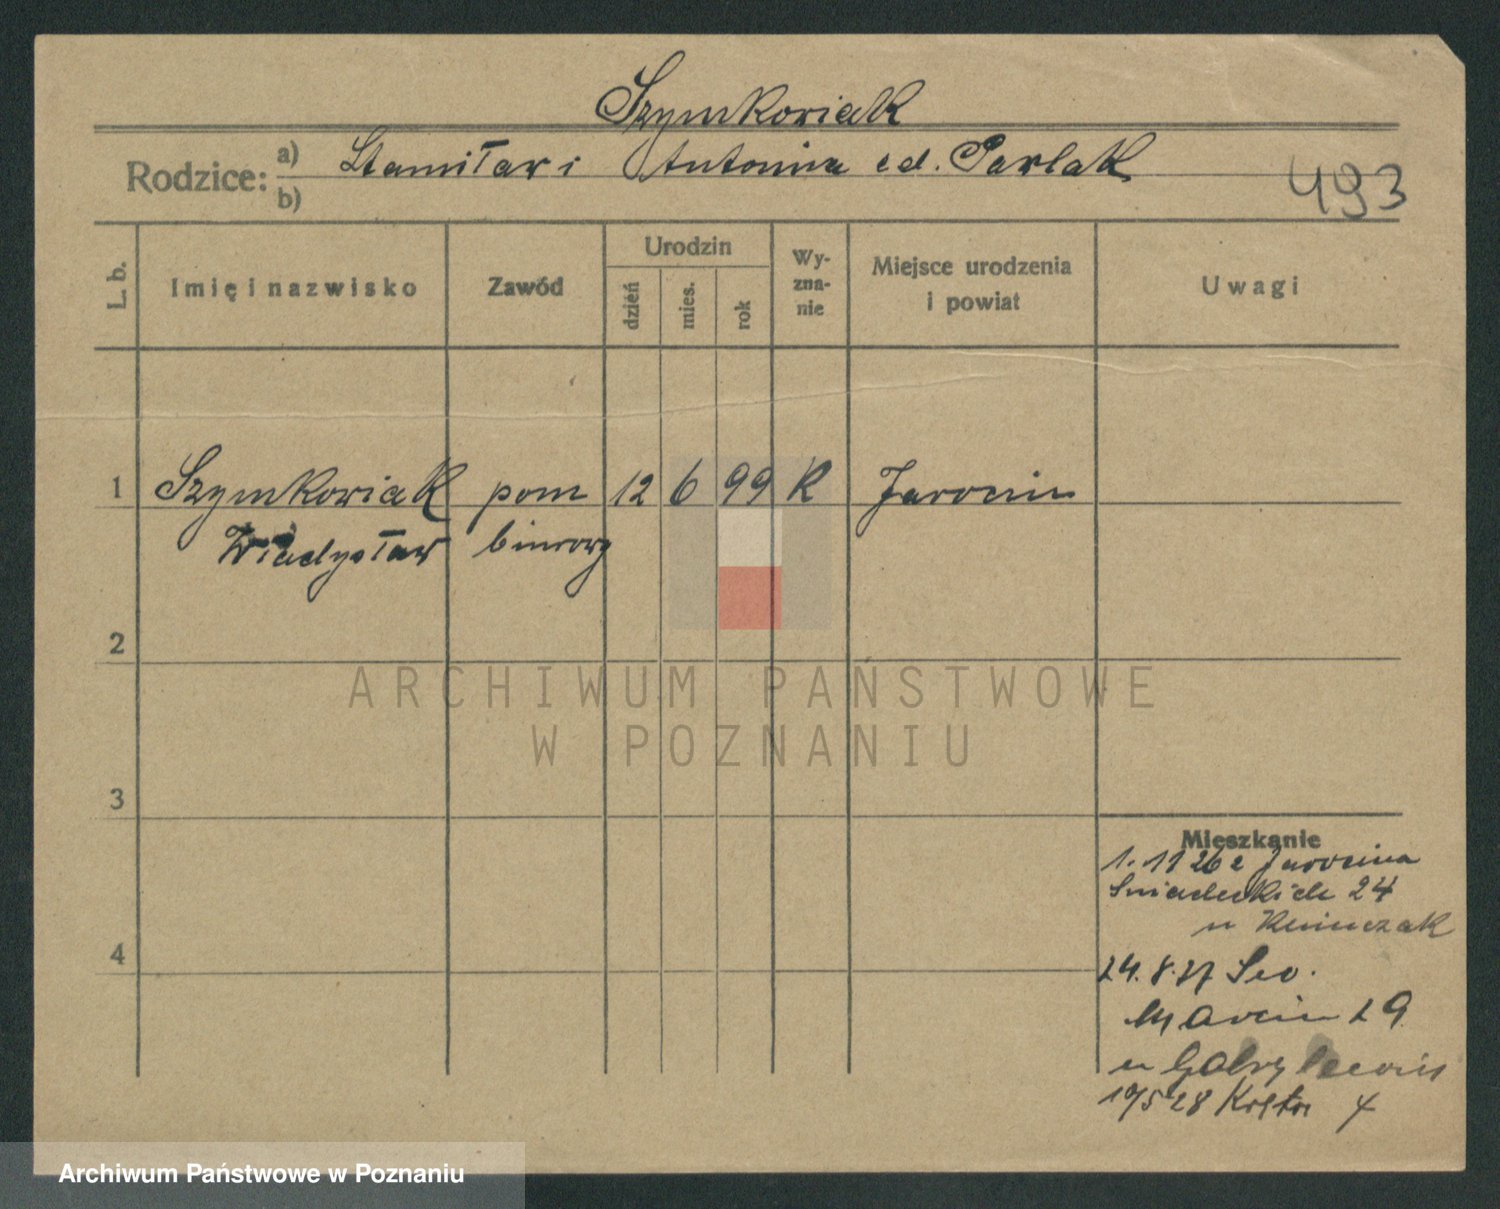 Szymkowiak
Rodzice: a) Stanisław i Antonina cd. Pawlak
b)
493
L. b.
Imię i nazwisko
Zawód
Urodzin
dzień
mies.
rok
Wy-
zna-
nie
Miejsce urodzenia
i powiat
Uwagi
1 Szymkowiak pom 12 6 99 K Jarocin
Władysław biurowy
2
3
4
Mieszkanie
1. 11 26 z Jarocina
Śniadeckich 24
u
24. 8. 27 Św.
Marcin 29
u
10/5 28 4
ARCHIWUM PAŃSTWOWE
W POZNANIU
Archiwum Państwowe w Poznaniu